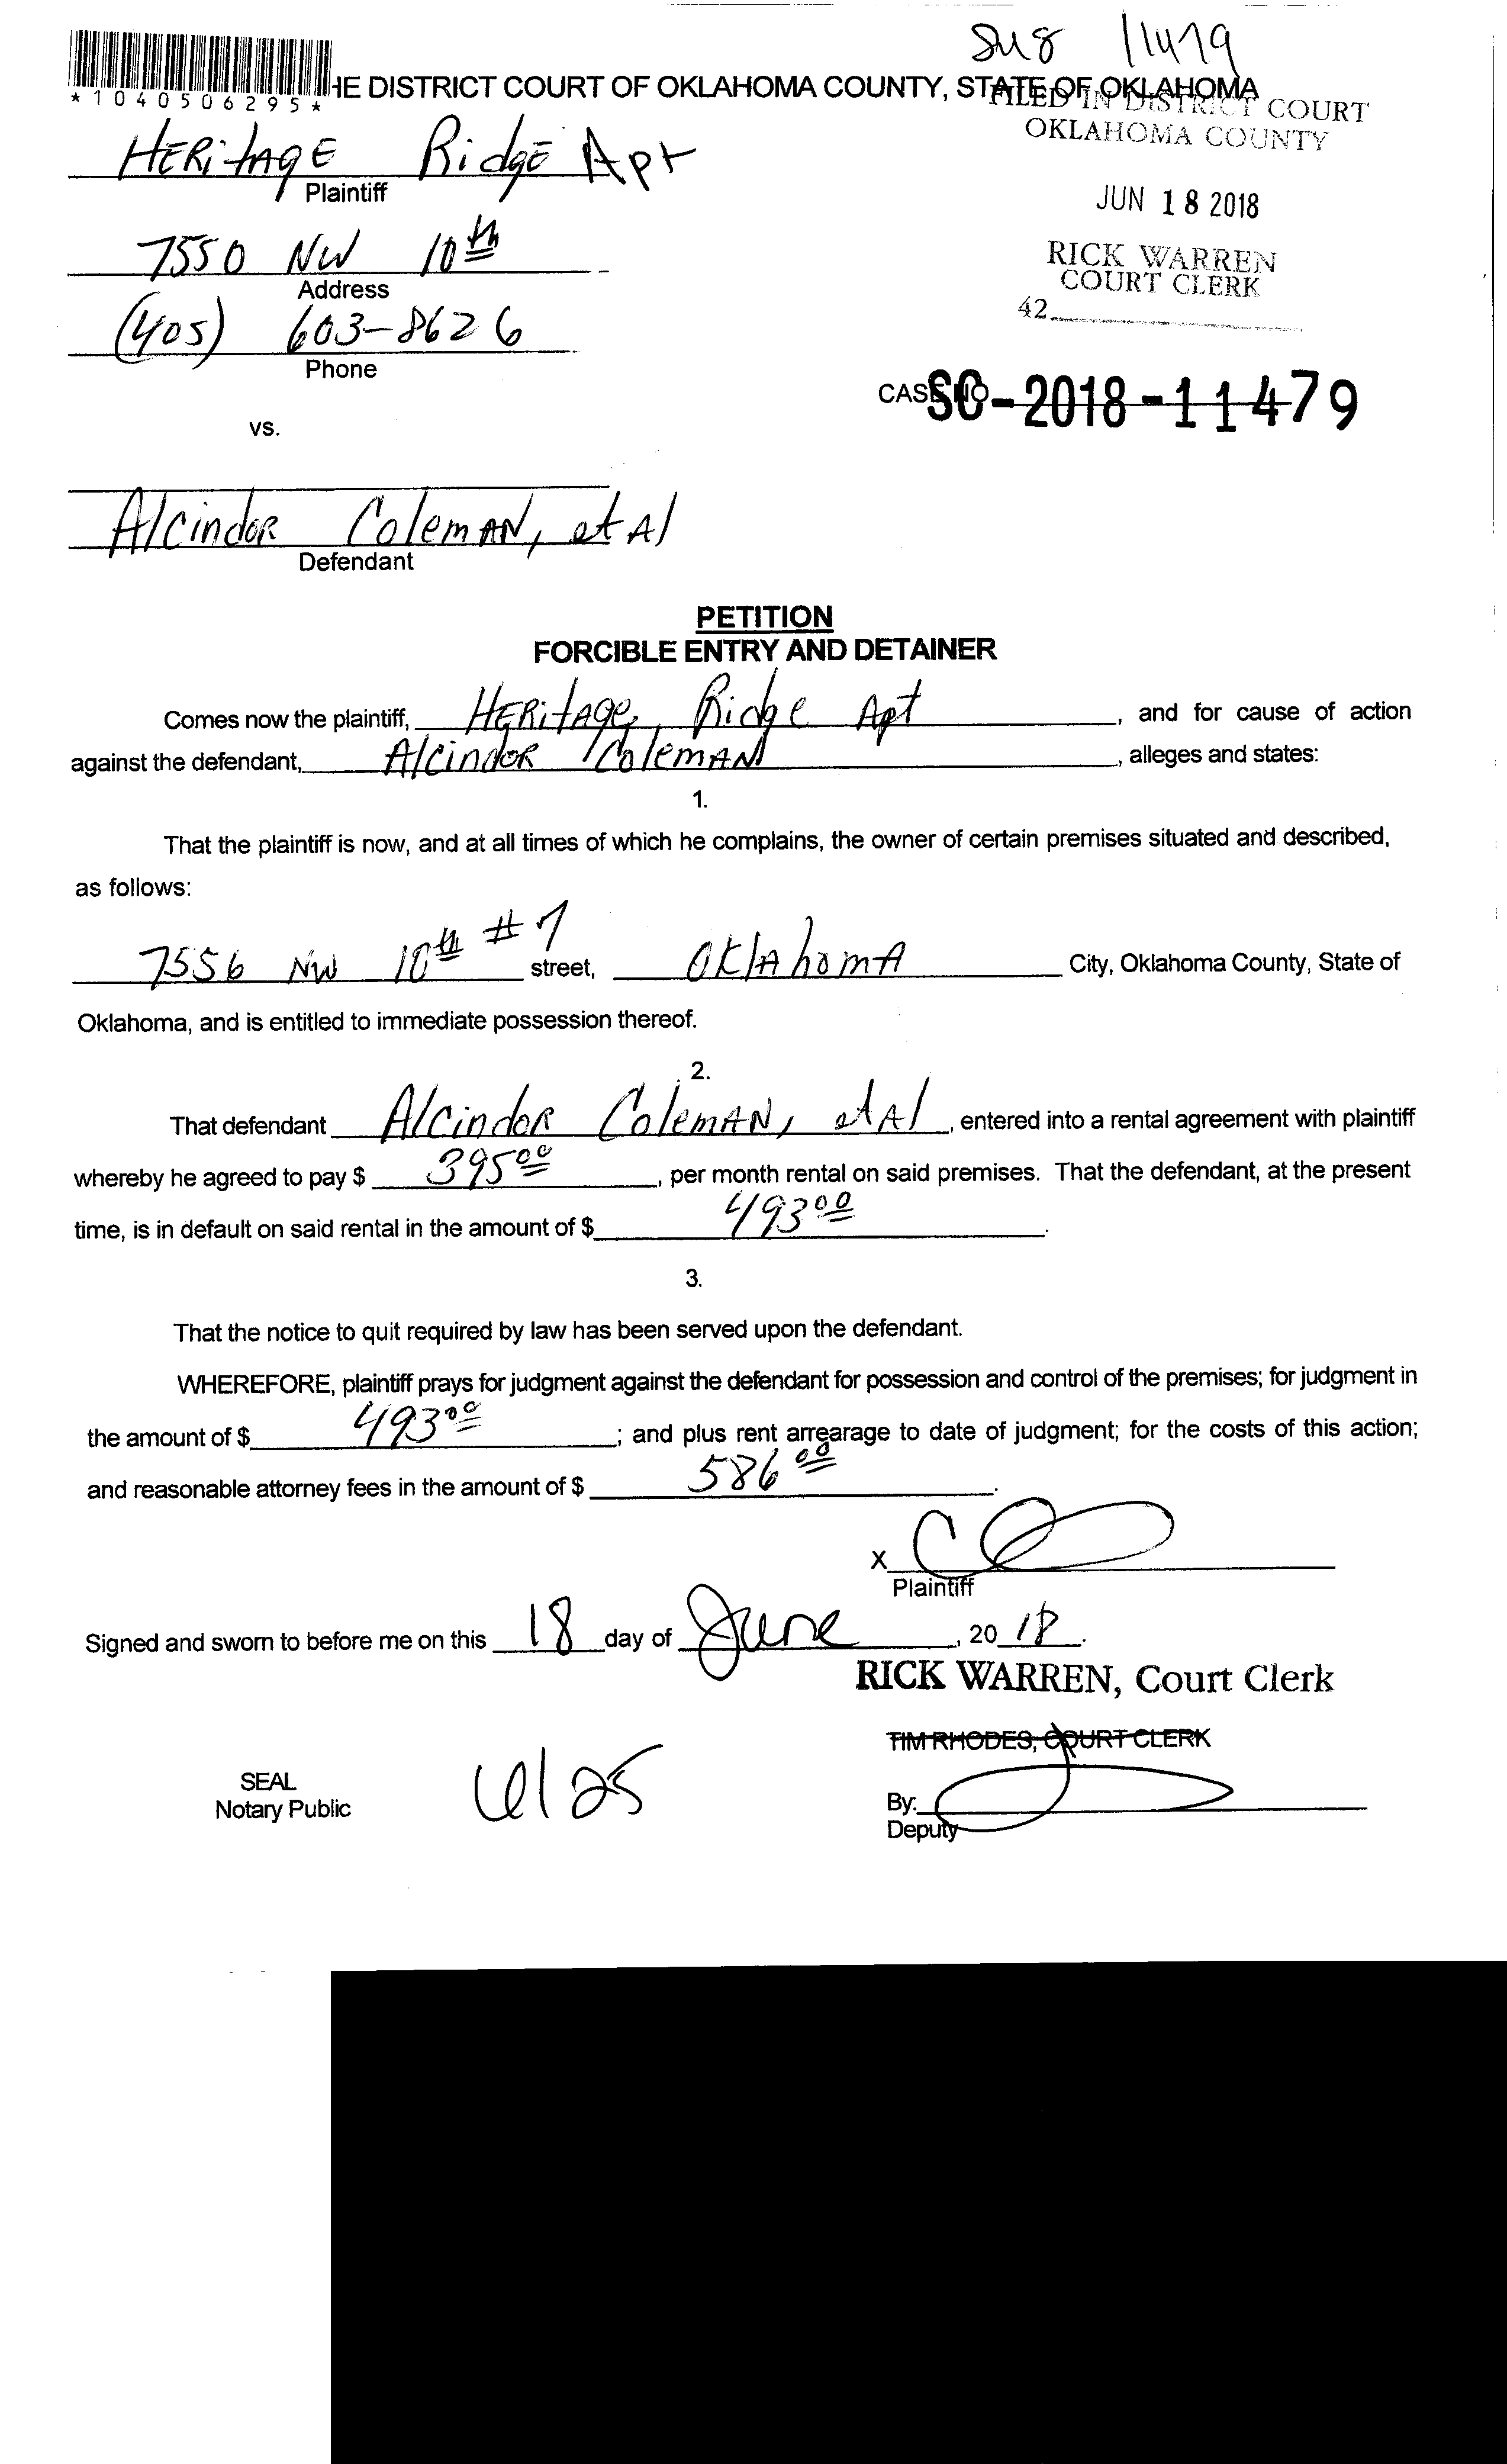 Su8 11479
*1040506295*
HE DISTRICT COURT OF OKLAHOMA COUNTY, STATE OF OKLAHOMA
FILED IN DISTRICT COURT
OKLAHOMA COUNTY
HERitAgE Ridge Apt
Plaintiff
JUN 18 2018
7550 NW 10th
Address
RICK WARREN
COURT CLERK
42
(405) 603-8626
Phone
CASE NO
SC-2018-11479
vs.
AlcindoR ColemAN, et Al
Defendant
PETITION
FORCIBLE ENTRY AND DETAINER
Comes now the plaintiff, HERitAge Ridge Apt, and for cause of action
against the defendant, AlcindoR ColemAN, alleges and states:
1.
That the plaintiff is now, and at all times of which he complains, the owner of certain premises situated and described,
as follows:
7556 NW 10th #7 street, OklAhomA City, Oklahoma County, State of
Oklahoma, and is entitled to immediate possession thereof.
2.
That defendant AlcindoR ColemAN, et Al, entered into a rental agreement with plaintiff
whereby he agreed to pay $ 395 00, per month rental on said premises. That the defendant, at the present
time, is in default on said rental in the amount of $ 493 00.
3.
That the notice to quit required by law has been served upon the defendant.
WHEREFORE, plaintiff prays for judgment against the defendant for possession and control of the premises; for judgment in
the amount of $ 493 00; and plus rent arrearage to date of judgment; for the costs of this action;
and reasonable attorney fees in the amount of $ 586 00.
X
Plaintiff
Signed and sworn to before me on this 18 day of June, 20 18.
RICK WARREN, Court Clerk
TIM RHODES, COURT CLERK
SEAL
Notary Public
6/25
By:
Deputy